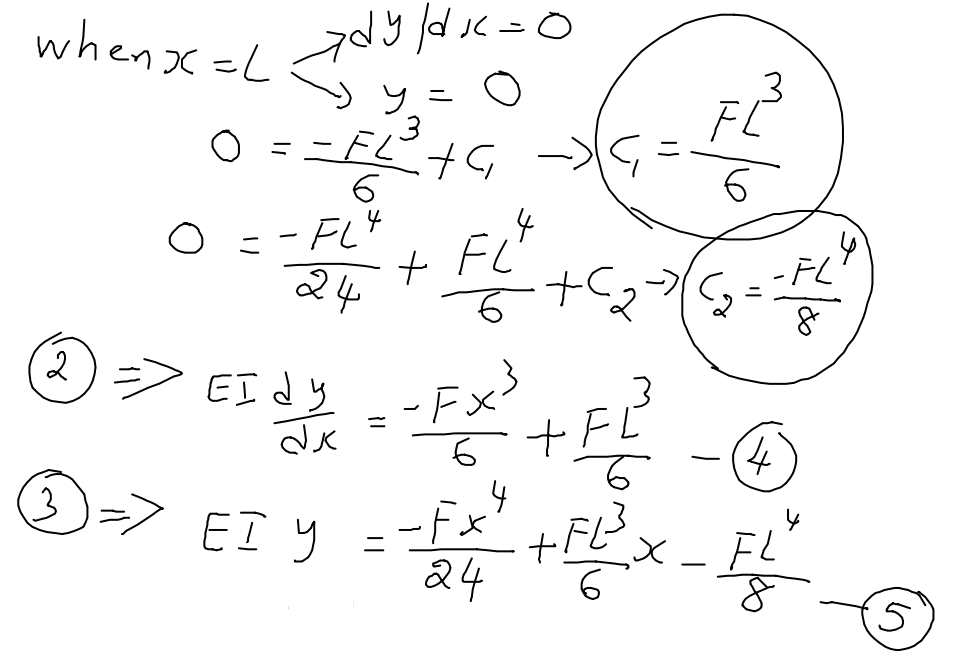 when x = L → dy/dx = 0
→ y = 0
0 = -FL³/6 + C₁ → C₁ = FL³/6
0 = -FL⁴/24 + FL⁴/6 + C₂ → C₂ = -FL⁴/8
② ⇒ EI dy/dx = -Fx³/6 + FL³/6 - ④
③ ⇒ EI y = -Fx⁴/24 + FL³/6 x - FL⁴/8 - ⑤